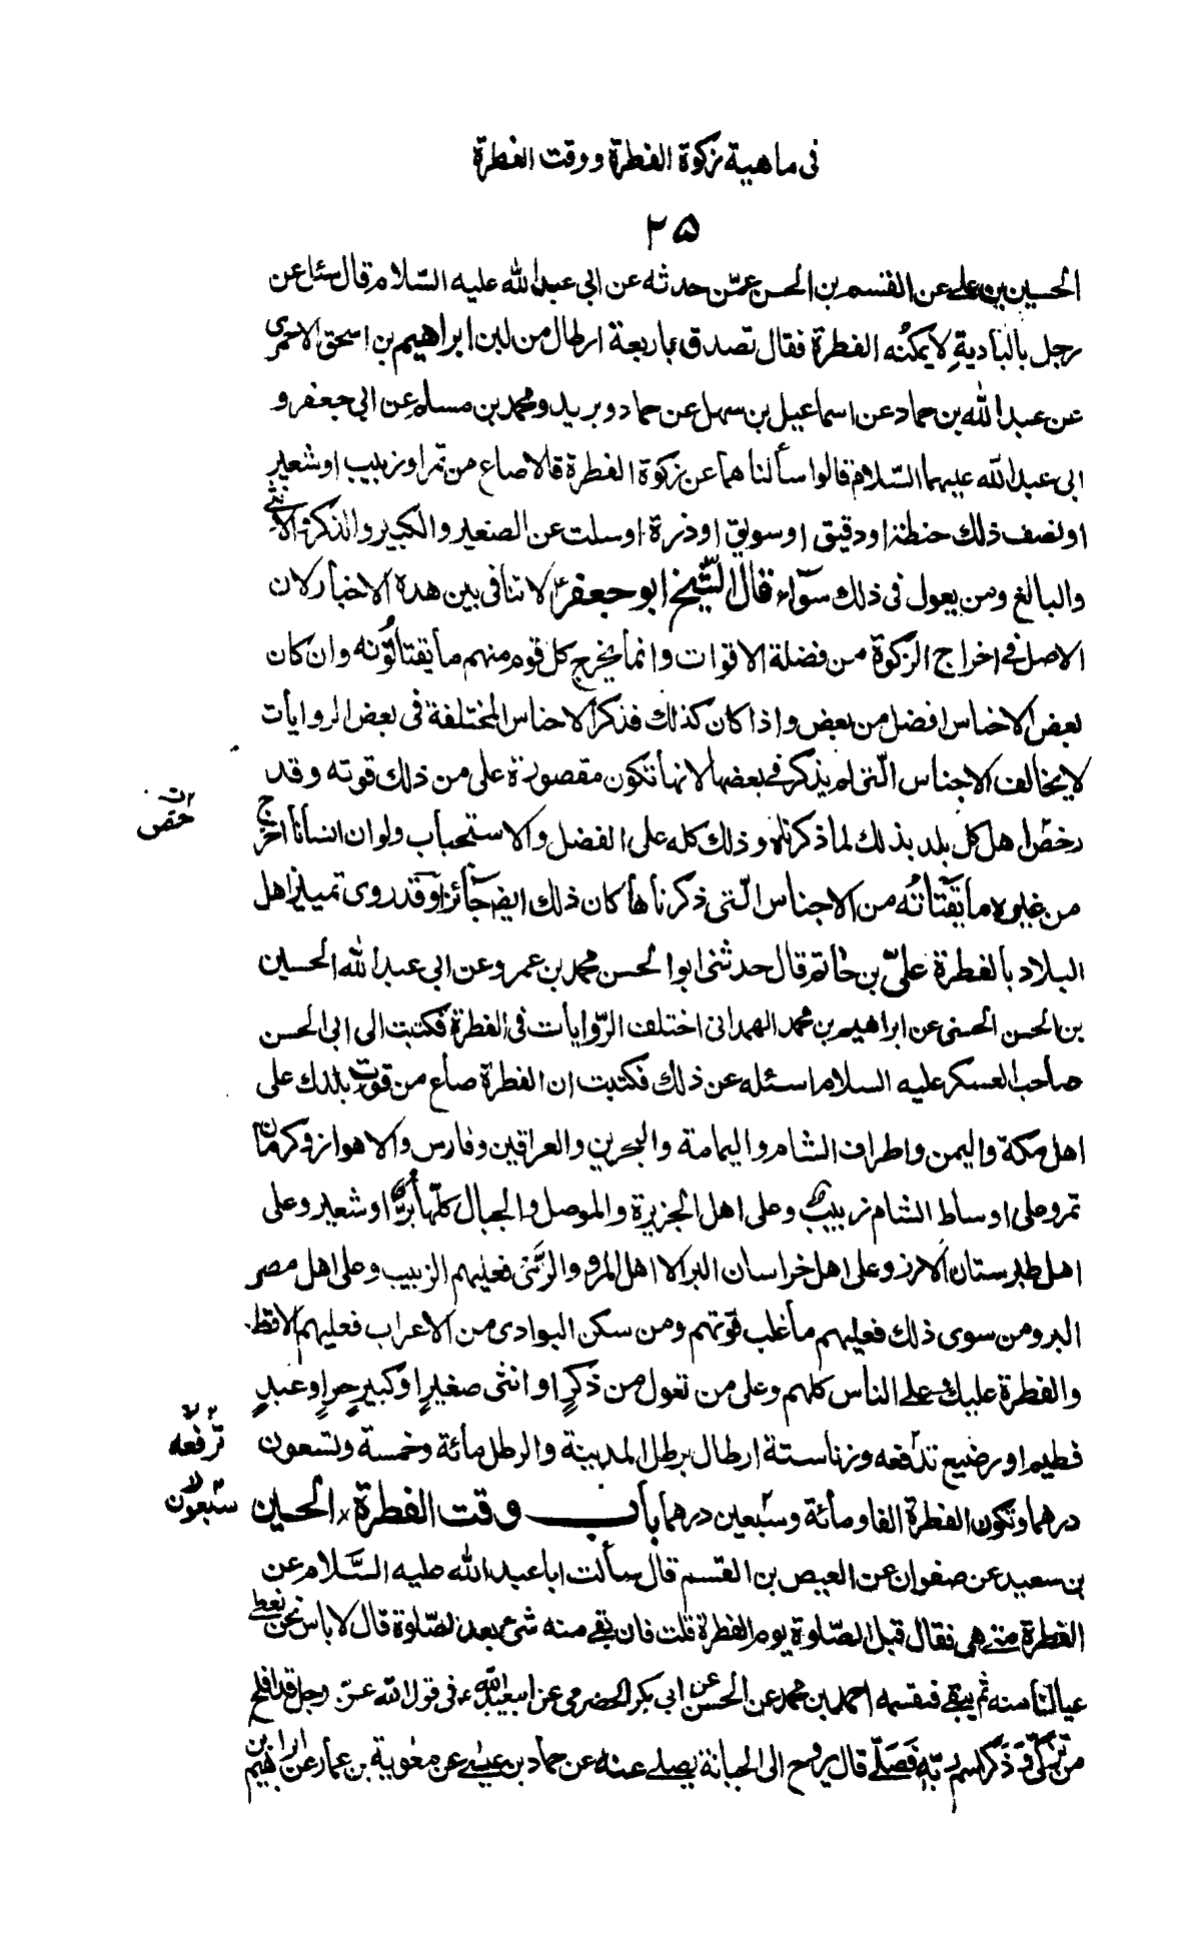 فى ماهية زكوة الفطرة ووقت الفطرة
٢٥
الحسين بن على عن القسم بن الحسن عمّن حدثه عن ابى عبد الله عليه السّلام قال سئل عن
رجل بالبادية لا يمكنه الفطرة فقال تصدق باربعة ارطال من لبن ابراهيم بن اسحق الاحمرى
عن عبد الله بن حماد عن اسماعيل بن سهل عن حماد وبريد ومحمد بن مسلم عن ابى جعفر و
ابى عبد الله عليهما السّلام قالوا سألناهما عن زكوة الفطرة قالا صاع من تمر او زبيب او شعير
او نصف ذلك حنطة او دقيق او سويق او ذرة او سلت عن الصغير والكبير والذكر والانثى
والبالغ ومن يعول فى ذلك سوآء قال الشّيخ ابو جعفر لا تنافى بين هذه الاخبار لان
الاصل فى اخراج الزكوة من فضلة الاقوات وانما يخرج كل قوم منهم ما يقتاتونه وان كان
بعض الاجناس افضل من بعض واذا كان كذلك فذكر الاجناس المختلفة فى بعض الروايات
لا يخالف الاجناس الّتى لم يذكر فى بعضها لانها تكون مقصورة على من ذلك قوته وقد
رخص اهل كل بلد بذلك لما ذكرناه وذلك كله على الفضل والاستحباب ولو ان انسانا اخرج
من غير ما يقتاته من الاجناس الّتى ذكرناها كان ذلك ايضا جآئزا وقد روى تمييز اهل
البلاد بالفطرة علىّ بن حاتم قال حدثنى ابو الحسن محمد بن عمرو عن ابى عبد الله الحسين
بن الحسن الحسنى عن ابراهيم بن محمد الهمدانى اختلف الرّوايات فى الفطرة فكتبت الى ابى الحسن
صاحب العسكر عليه السلام اسئله عن ذلك فكتبت ان الفطرة صاع من قوت بلدك على
اهل مكة واليمن واطراف الشام واليمامة والبحرين والعراقين وفارس والاهواز وكرمان
تمر وعلى اوساط الشام زبيب وعلى اهل الجزيرة والموصل والجبال كلّها برّ او شعير وعلى
اهل طبرستان الارز وعلى اهل خراسان البر الا اهل المرو والرّى فعليهم الزبيب وعلى اهل مصر
البر ومن سوى ذلك فعليهم ما غلب قوتهم ومن سكن البوادى من الاعراب فعليهم الاقط
والفطرة عليك وعلى الناس كلهم وعلى من تعول من ذكرٍ او انثى صغيرٍ او كبيرٍ حرٍ او عبدٍ
فطيم او رضيع تدفعه وزنا ستة ارطال برطل المدينة والرطل مائة وخمسة وتسعون
درهما وتكون الفطرة الفا ومائة وسبعين درهما باب وقت الفطرة الحسين
بن سعيد عن صفوان عن العيص بن القسم قال سألت ابا عبد الله عليه السَّلام عن
الفطرة متى هى فقال قبل الصّلوة يوم الفطرة قلت فان بقى منه شئ بعد الصّلوة قال لا باس نحن نعطى
عيالنا منه ثم يبقى فنقسمه احمد بن محمد عن الحسن عن ابى بكر الحضرمى عن ابى عبد الله ع فى قول الله عزّ وجل قد افلح
من تزكّى وَذَكَر اسم ربّه فَصَلّى قال يروح الى الجبانة يصلى عنه عن حماد بن عيسى عن معوية بن عمار عن ابراهيم بن
ترفعه
سبعون